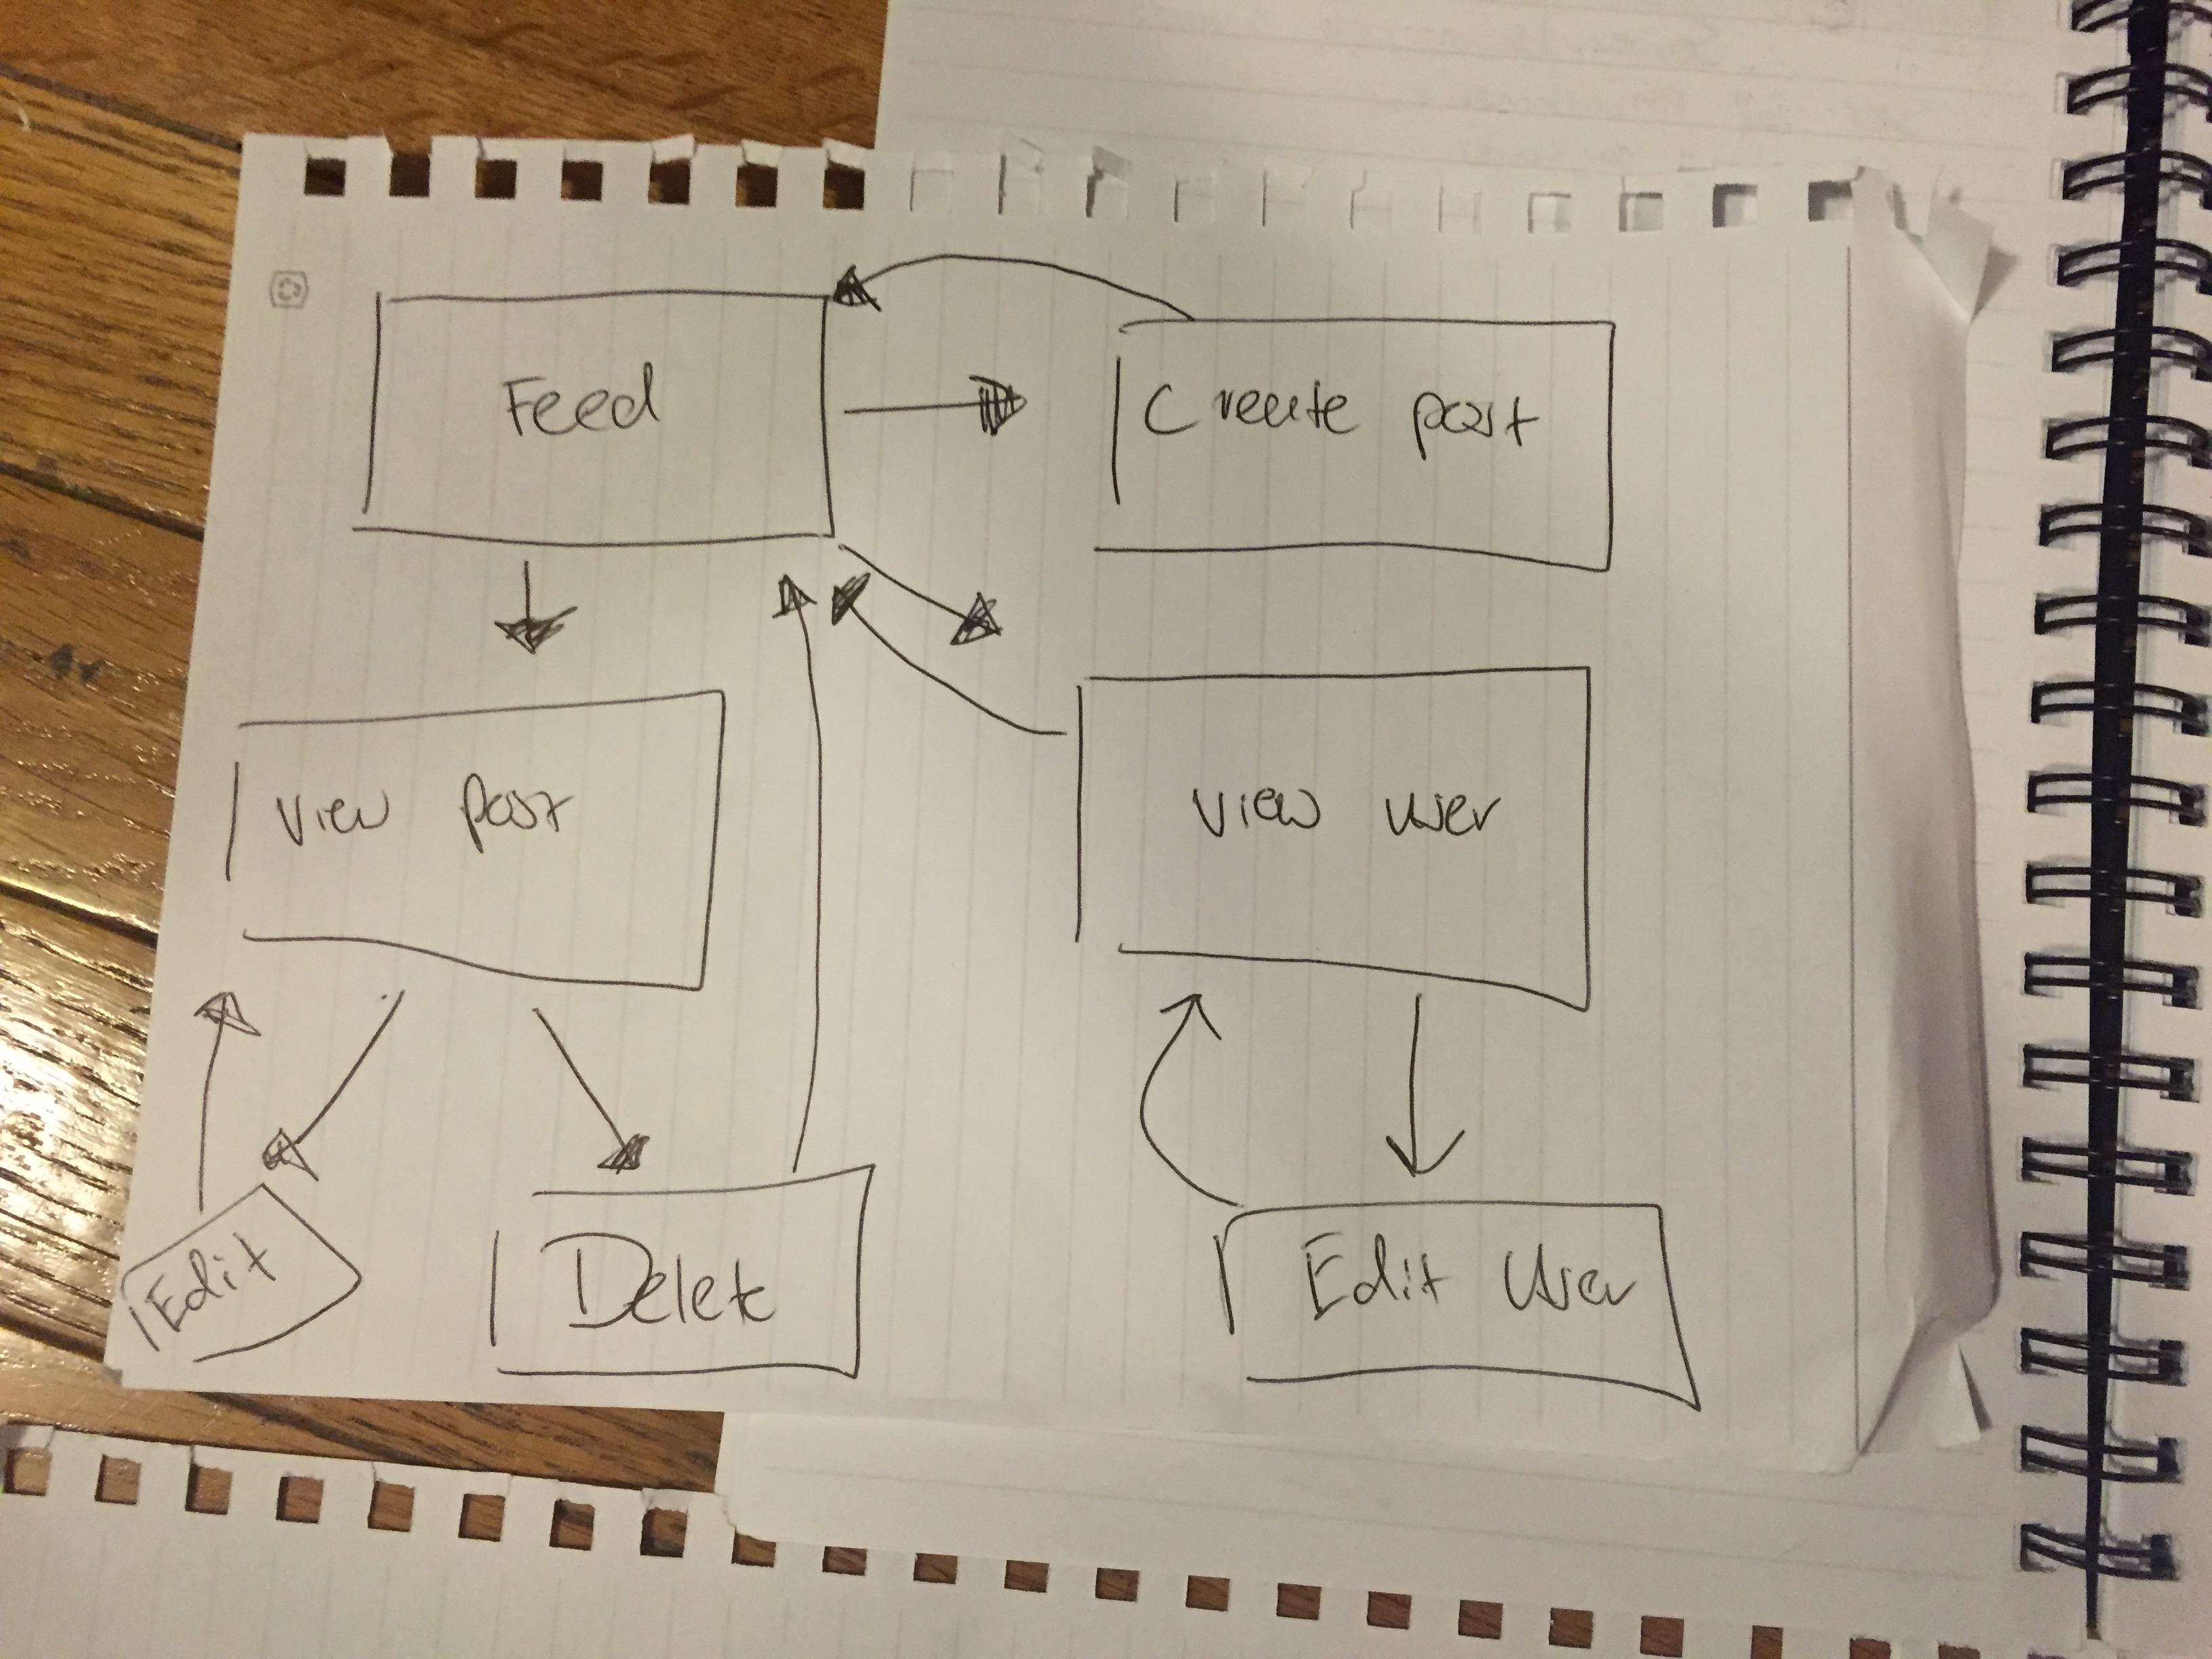 Feed
Create post
View post
View user
Edit
Delete
Edit User